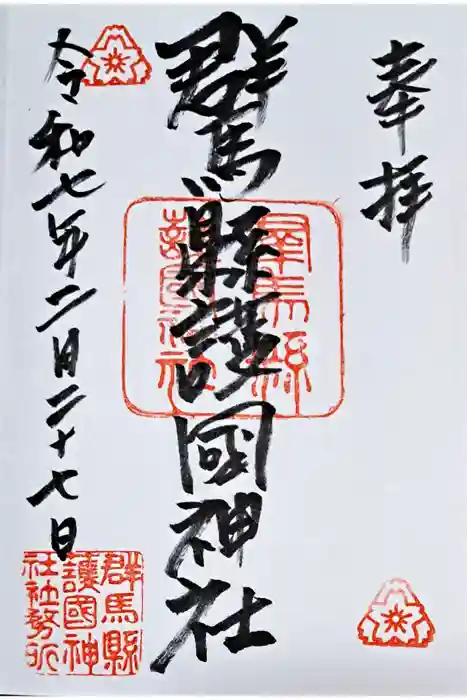 奉拝
群馬縣護國神社
群馬縣護國神社
令和七年二月二十七日
群馬縣
護國神
社社務所